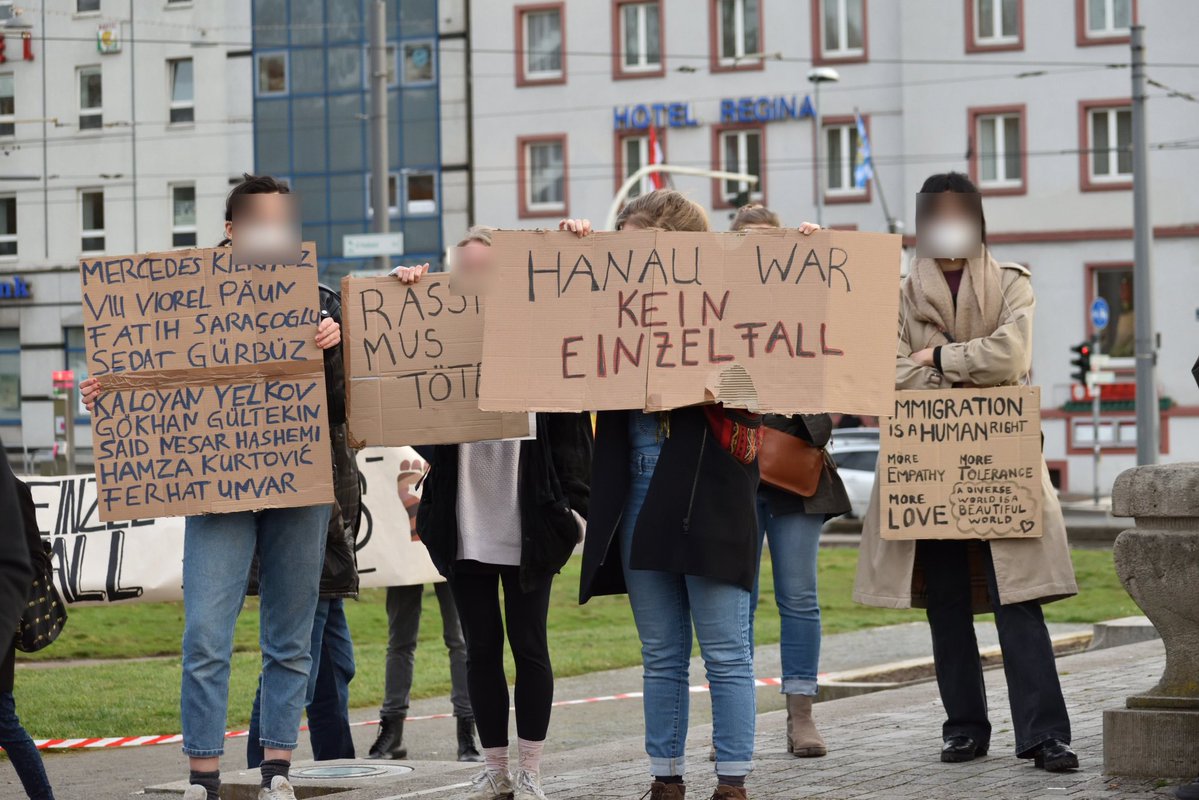 HOTEL REGINA
MERCEDES
VILI VIOREL PĂUN
FATIH SARAÇOGLU
SEDAT GÜRBÜZ
KALOYAN VELKOV
GÖKHAN GÜLTEKIN
SAID NESAR HASHEMI
HAMZA KURTOVIĆ
FERHAT UNVAR
RASSI
MUS
TÖTE
HANAU WAR
KEIN
EINZELFALL
IMMIGRATION
IS A HUMAN RIGHT
MORE
EMPATHY
MORE
TOLERANCE
MORE
LOVE
A DIVERSE
WORLD IS A
BEAUTIFUL
WORLD
EINZEL
FALL